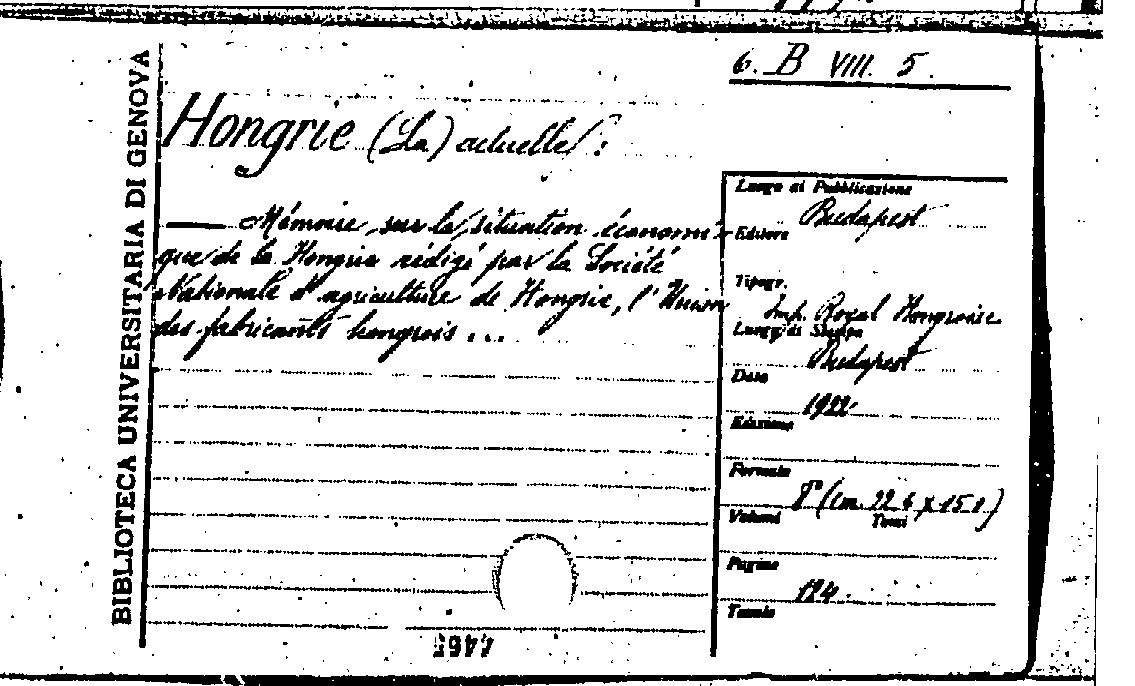 BIBLIOTECA UNIVERSITARIA DI GENOVA
6. B VIII. 5.
Hongrie (La) actuelle:
— Mémoire sur la situation économi-
que de la Hongrie rédigé par la Société
Nationale d'agriculture de Hongrie, l'Union
des fabricants hongrois ...
Luogo di Pubblicazione
Budapest
Editore
Tipogr.
Imp. Royal Hongroise
Luogo di Stampa
Budapest
Data
1922
Edizione
Formato
8° (cm. 22 6 x 15 1)
Volumi Tomi
Pagine
124.
Tavole
4465